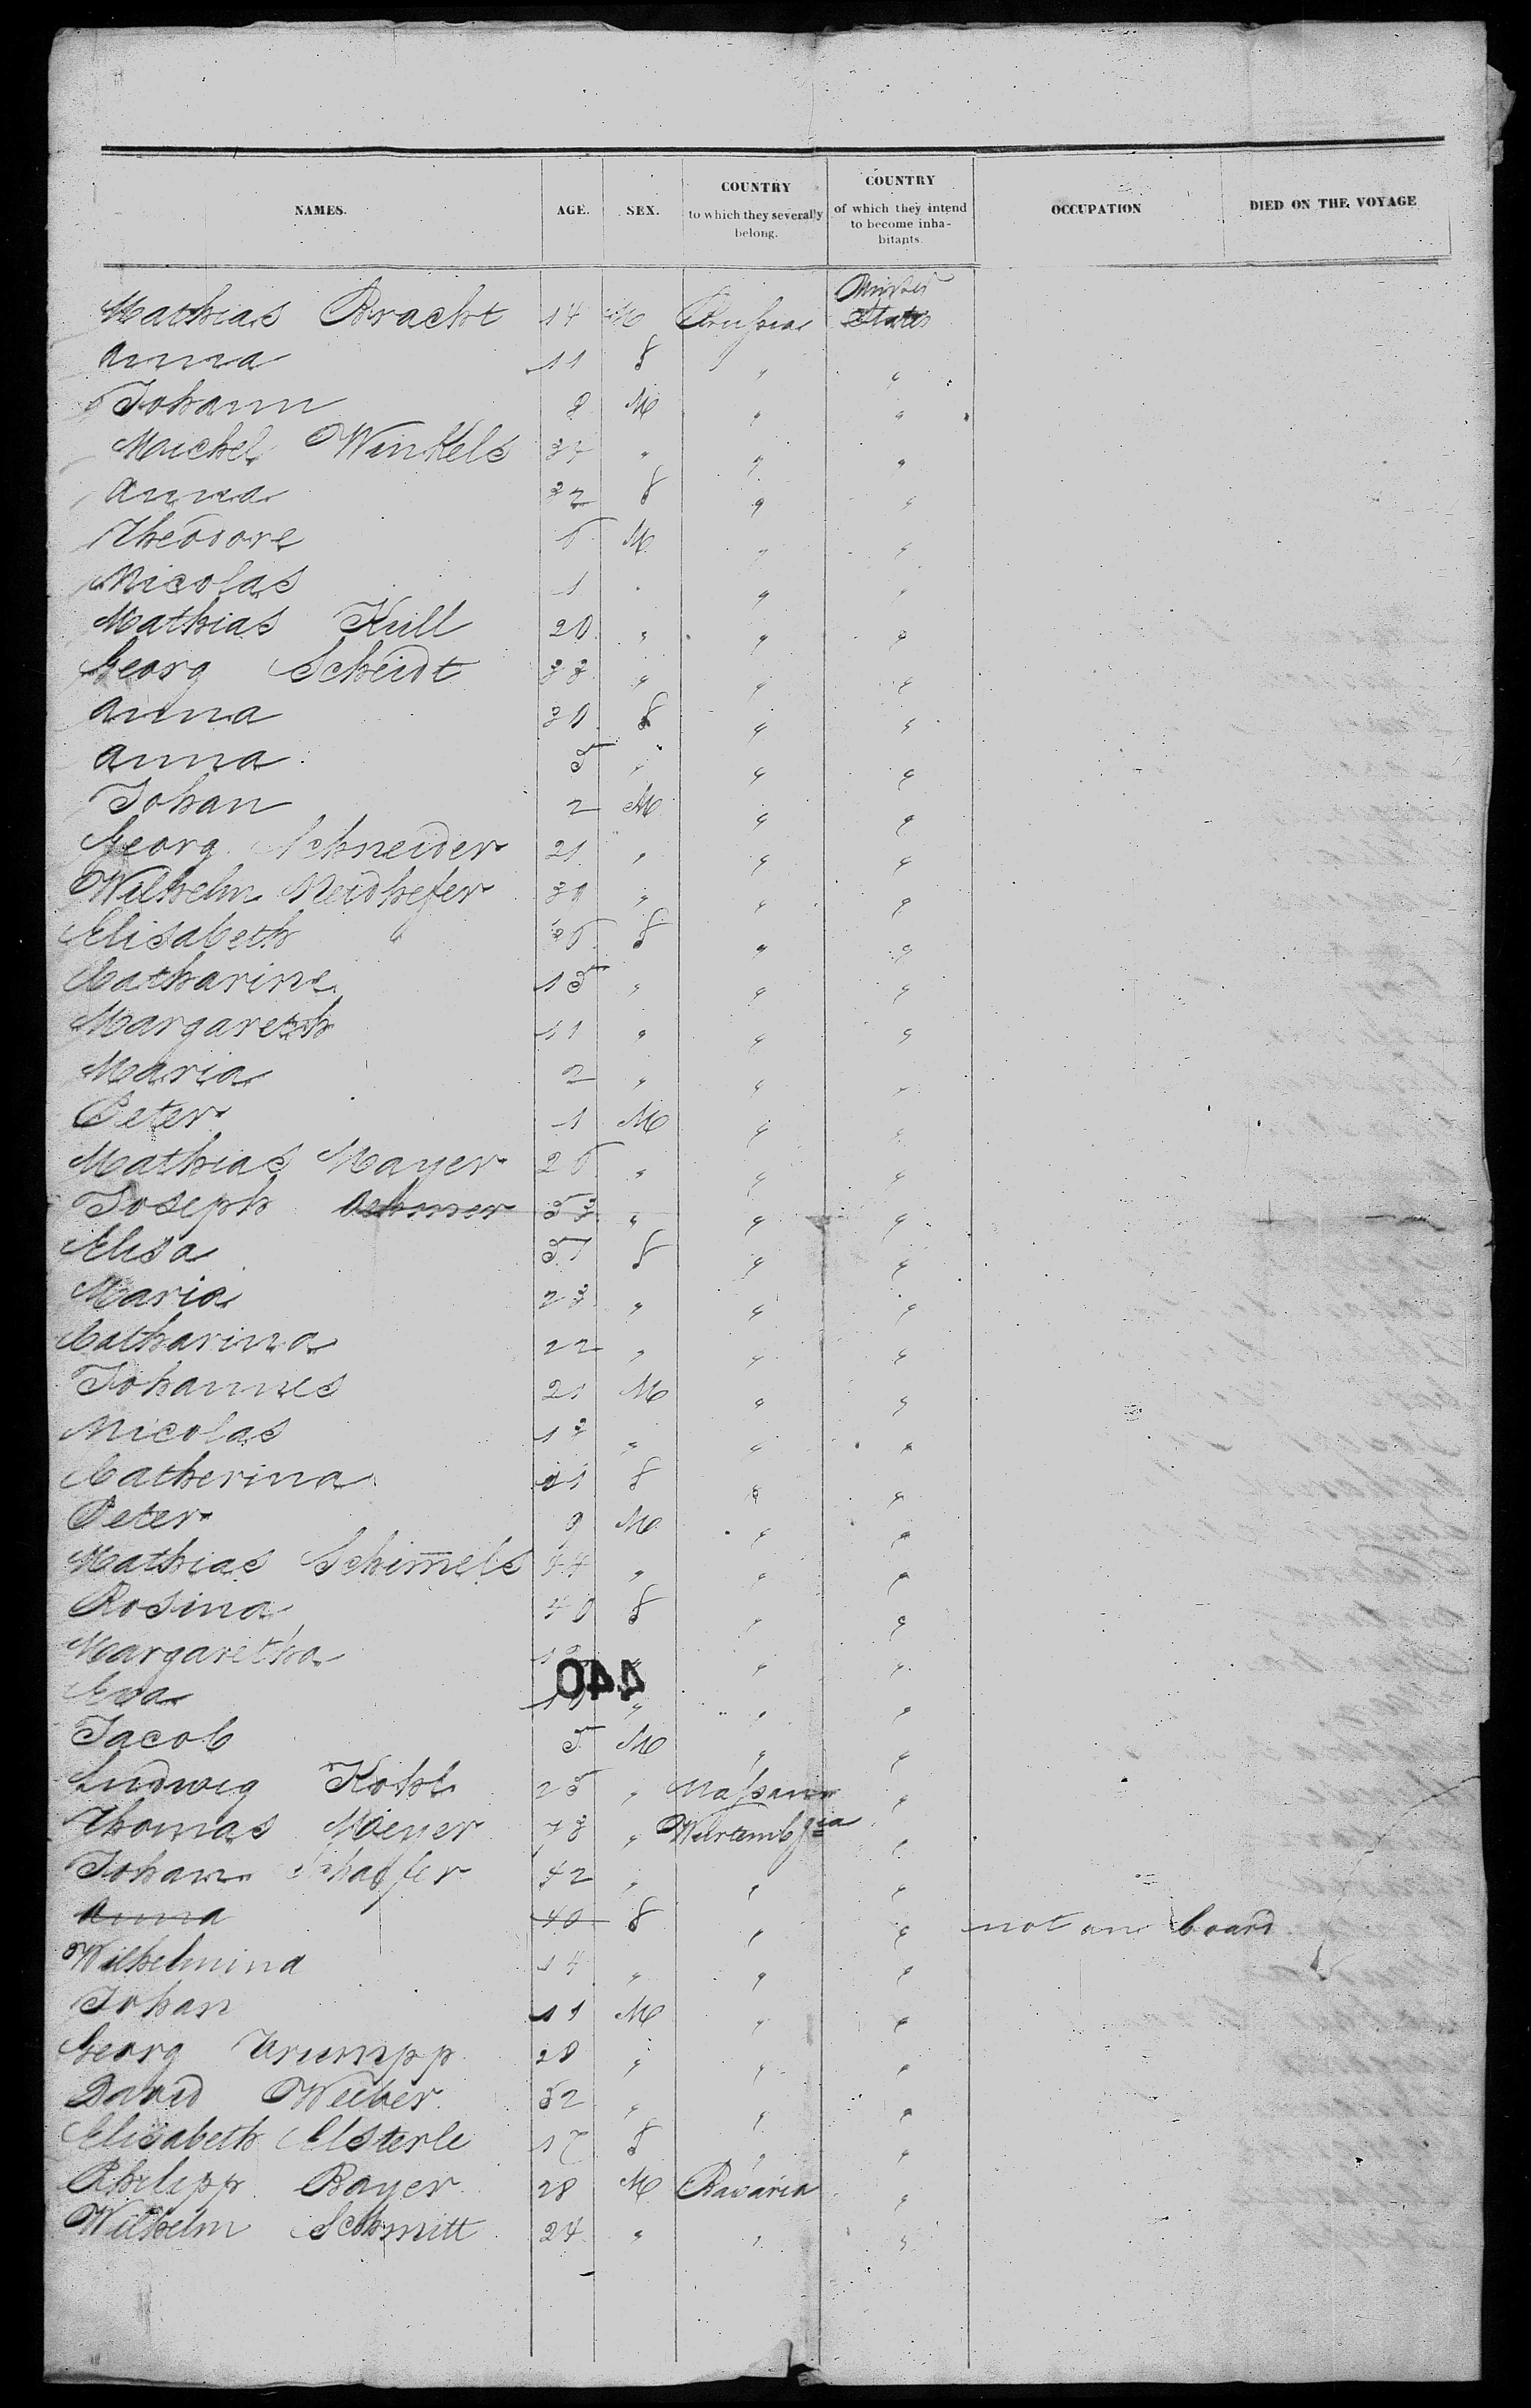 NAMES. AGE. SEX. COUNTRY to which they severally belong. COUNTRY of which they intend to become inha-bitants. OCCUPATION DIED ON THE VOYAGE
Mathias Bracht 14 M Prussia United States
Anna 11 f " "
Johann 8 M " "
Michel Winkels 34 " " "
Anna 32 f " "
Theodore 6 M " "
Nicolas 1 " " "
Mathias Kull 20 " " "
Georg Scheidt 33 " " "
Anna 30 f " "
Anna 5 " " "
Johan 2 M " "
Georg Schneider 21 " " "
Wilhelm Neidhefer 39 " " "
Elisabeth " 36 f " "
Catharine 15 " " "
Margareth 11 " " "
Maria 2 " " "
Peter 1 M " "
Mathias Mayer 26 " " "
Joseph 53 " " "
Elisa 51 f " "
Maria 23 " " "
Catharina 22 " " "
Johannes 21 M " "
Nicolas 13 " " "
Catherina 11 f " "
Peter 9 M " "
Mathias Schimels 44 " " "
Rosina 40 f " "
Margaretha " " "
440
Eva " " "
Jacob 5 M " "
Ludwig Kohl 25 " Nassau "
Thomas Meyer 48 " "
Johann Schaffer 42 " " "
Anna 40 f " " not on board
Wilhelmina 14 " " "
Johan 11 M " "
Georg Trumpp 28 " " "
David Weiber 52 " " "
Elisabeth Elsterle 17 f " "
Philipp Bayer 28 M Bavaria "
Wilhelm Schmitt 24 " " "